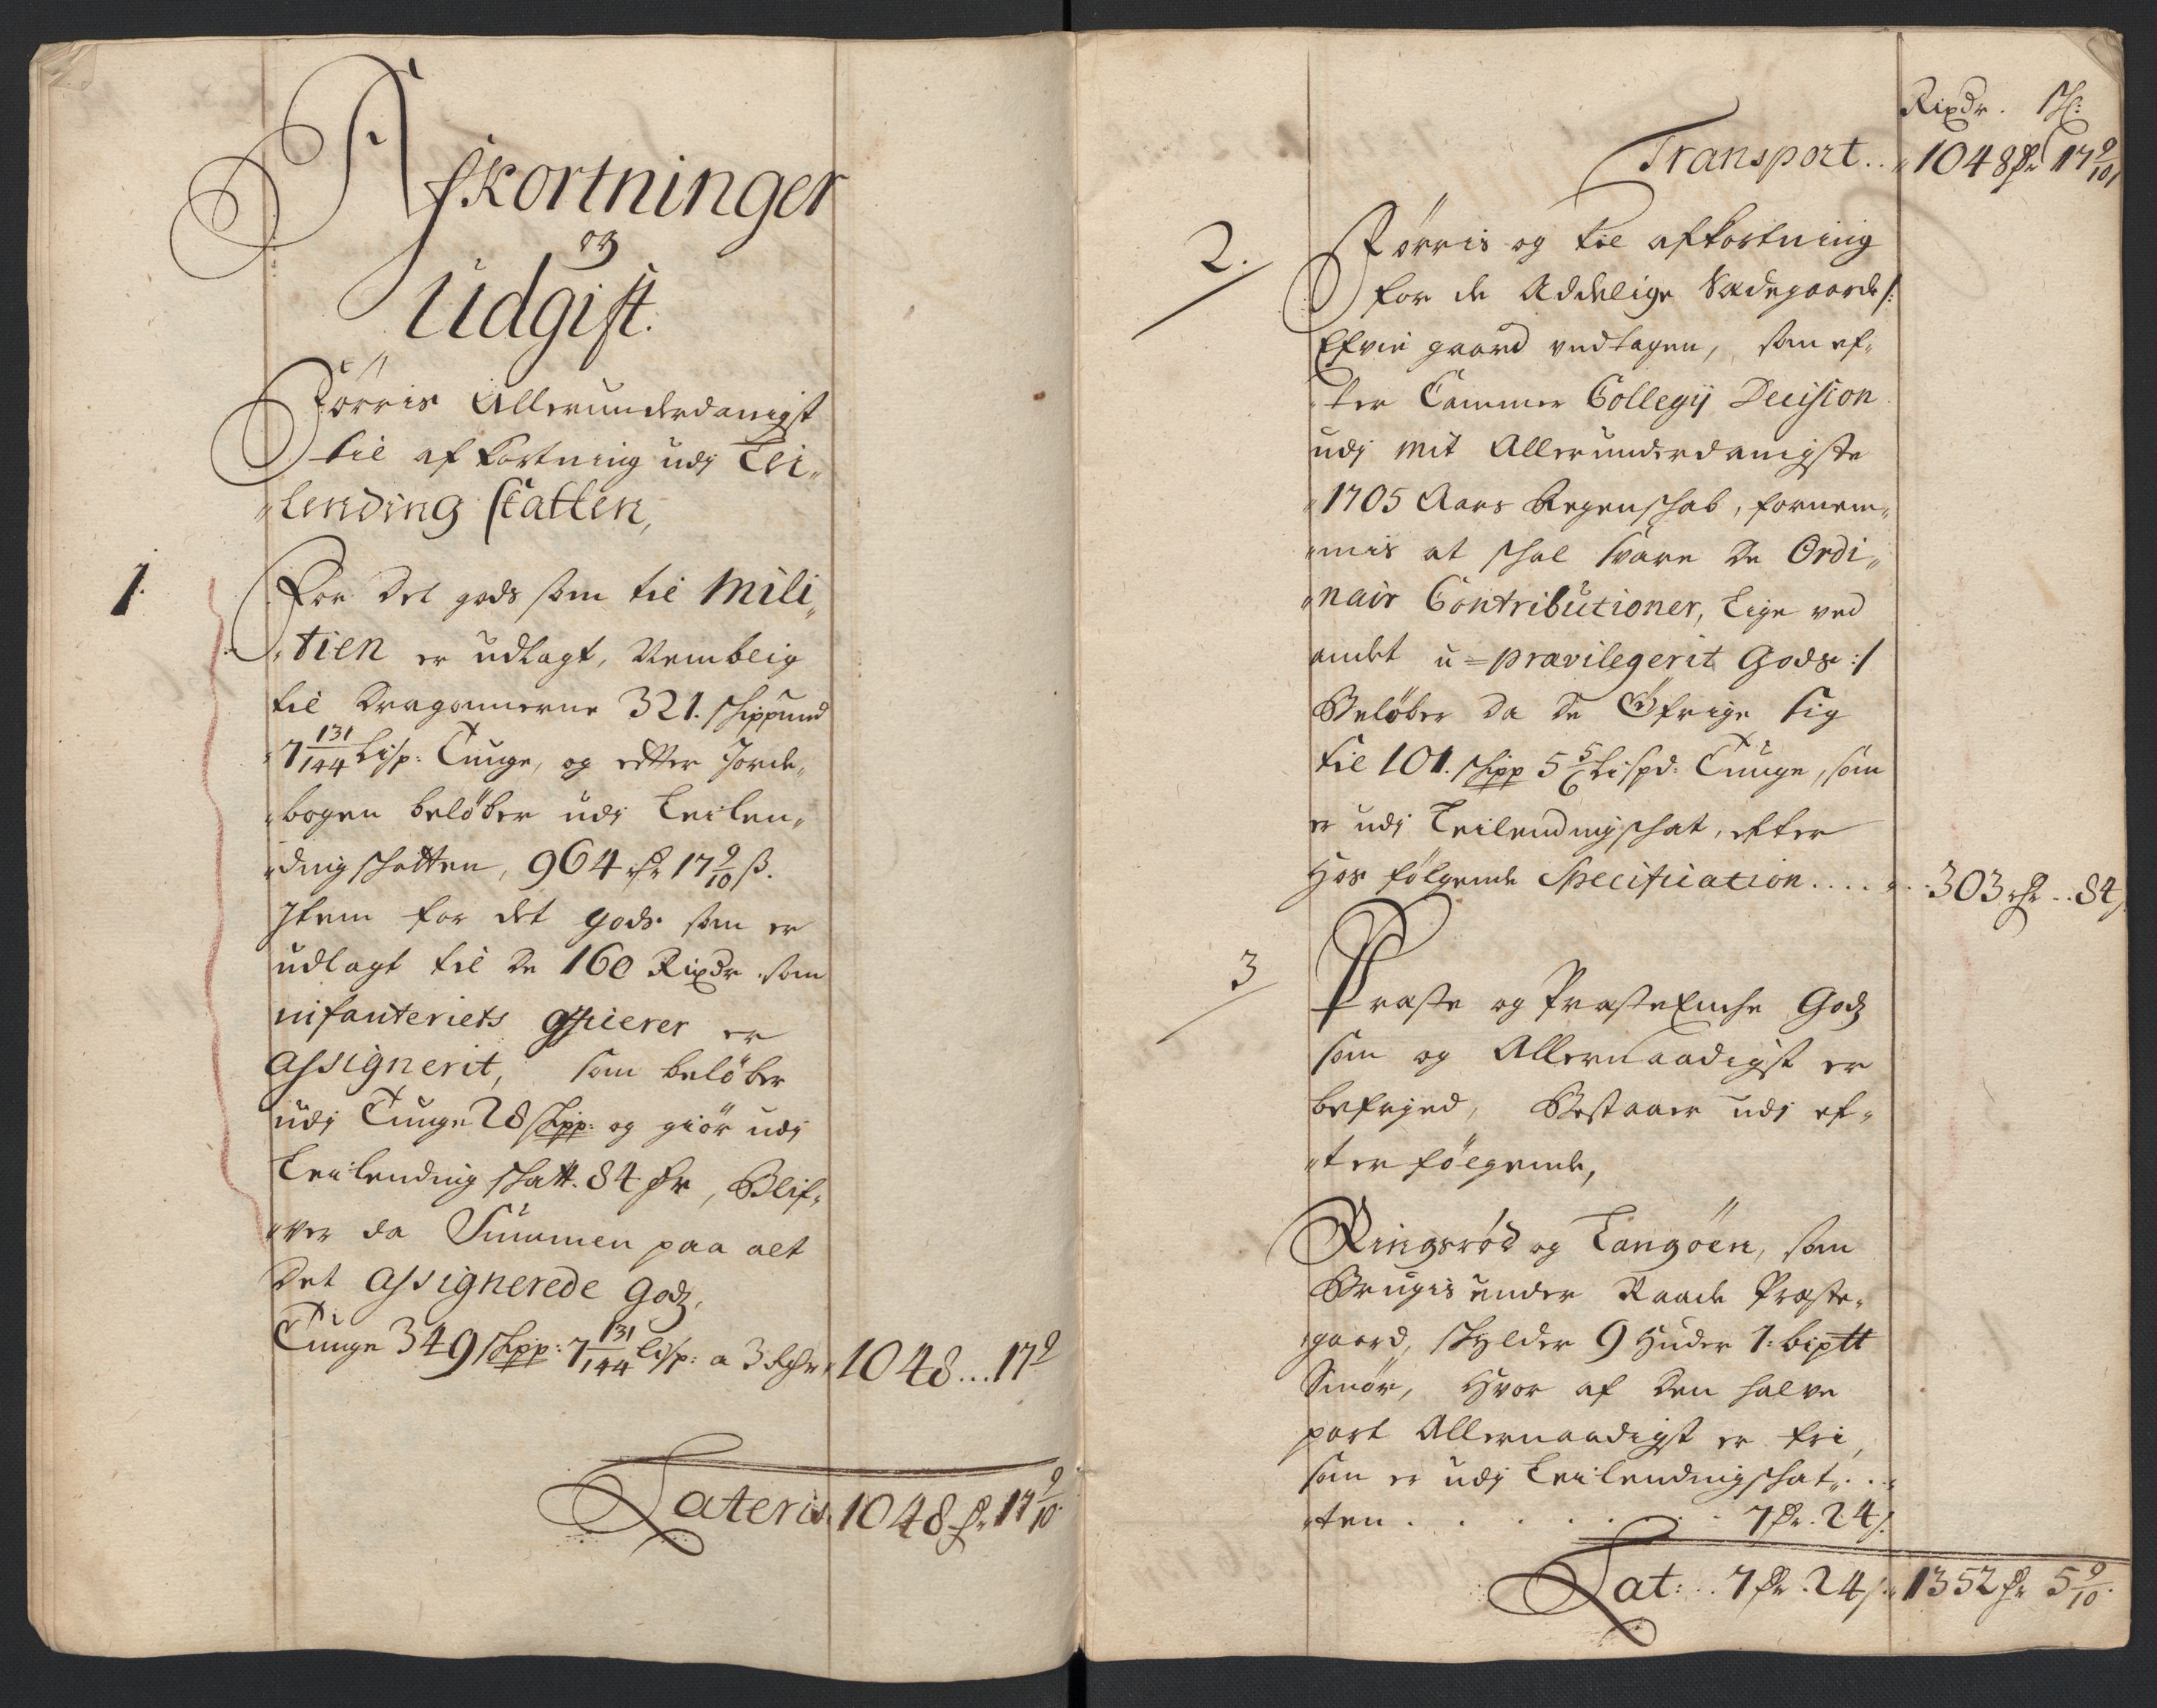 Afkortninger
og
Udgift.
Förris Allerunderdanigst
til afkortning udj Lei„
„lending skatten,
1. For det gods som til Mili„
„tien er udlagt, Nemblig
til Dragounerne 321. skippund
„7 131/144 Lisp: Tunge, og efter Jorde„
„bogen belöber udj Leilen„
„ding skatten, 964 rdr 17 9/10 ß.
Item for det gods som er
udlagt til de 160 Rixdr som
infanteriets officerer er
assignerit, som belöber
udj Tunge 28 skpp: og giör udj
Leilending skatt. 84 rdr, Blif„
„ver da Summen paa alt
det assignerede Godz,
Tunge 349 skpp: 7 131/144 Lisp: a 3 rdr 1048...17 9
Lateris 1048 rdr 17 9/10.
Rixdr. sk:
Transport.. 1048 rdr 17 9/10
2. Förris og til afkortning
for de Addelige Sædegaarde /:
Efvie gaard undtagen, som ef„
„ter Cammer Collegij Decision
udj mit Allerunderdanigste
„1705 Aars Regenskab, fornem„
„mis at skal svare de Ordi„
„nair Contributioner, lige ved
andet u=pravilegerit Gods :/
Belöber da de Öfrige sig
til 101. skpp 5 5/6 Lispd: Tunge, som
er udj Leilendingskat, efter
Hos fölgende Specification.... 303 rdr .. 84 s.
3 Præste og Præste Enche Godz
som og Allernaadigst er
befrjed, Bestaaer udj ef„
„ter fölgende,
Ringsröd og Langöen, som
Brugis under Raade Præste„
„gaard, skylder 9 Huder 1: biptt
Smör, Hvor af den halve
part Allernaadigst er fri,
som er udj Leilendingskat„
„ten . . . . . . . 7 rdr. 24 s.
Lat: .. 7 rdr. 24 s. 1352 rdr 5 9/10.